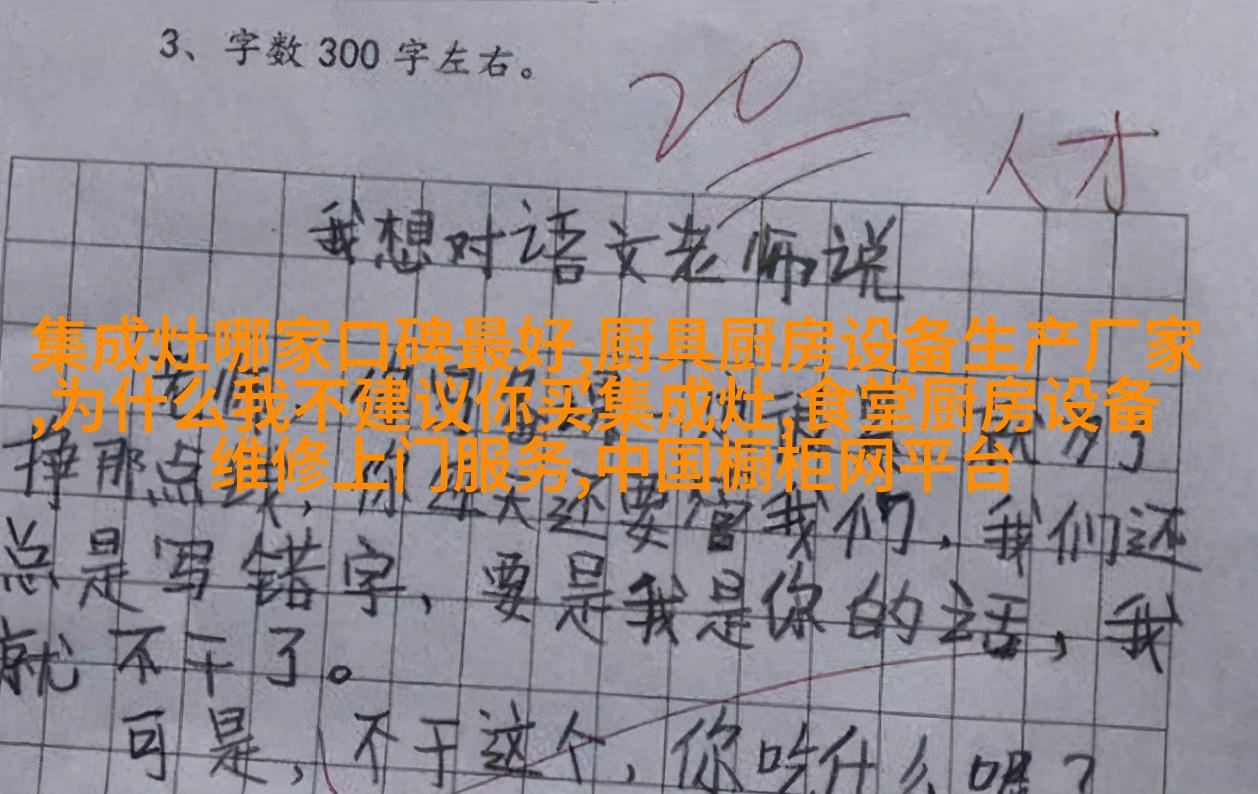 3、字数300字左右。
20
人才
我想对语文老师说
集成灶哪家口碑最好,厨具厨房设备生产厂家
,为什么我不建议你买集成灶,食堂厨房设备
维修上门服务,中国橱柜网平台
挣那点
你 天还要管我们，我们还
总是写错字，要是我是你的话，我
就不干了。
可是，不干这个，你吃什么呢？